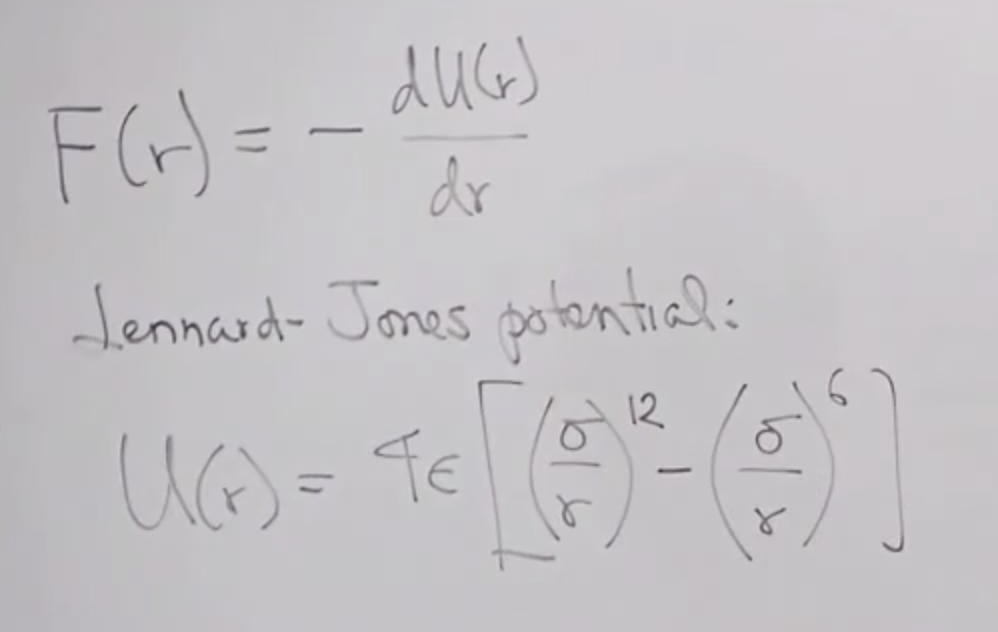 F(r) = - dU(r)/dr
Lennard-Jones potential:
U(r) = 4ϵ [(σ/r)^12 - (σ/r)^6]